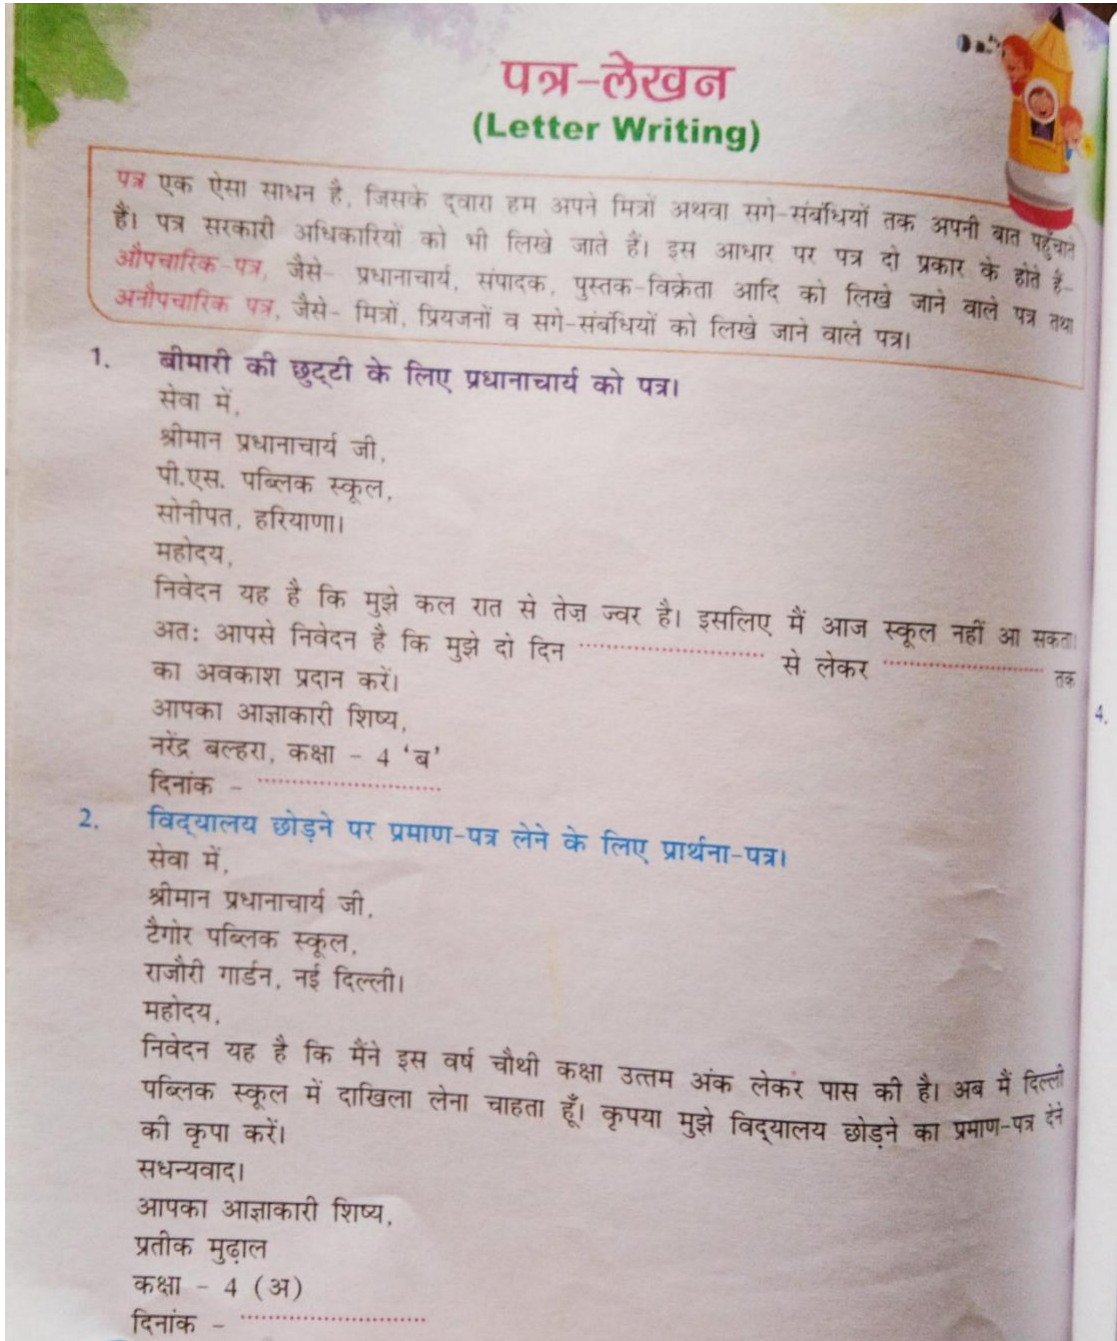 पत्र-लेखन
(Letter Writing)
पत्र एक ऐसा साधन है, जिसके द्वारा हम अपने मित्रों अथवा सगे-संबंधियों तक अपनी बात पहुँचाते
हैं। पत्र सरकारी अधिकारियों को भी लिखे जाते हैं। इस आधार पर पत्र दो प्रकार के होते हैं-
औपचारिक-पत्र, जैसे- प्रधानाचार्य, संपादक, पुस्तक-विक्रेता आदि को लिखे जाने वाले पत्र तथा
अनौपचारिक पत्र, जैसे- मित्रों, प्रियजनों व सगे-संबंधियों को लिखे जाने वाले पत्र।
1. बीमारी की छुट्टी के लिए प्रधानाचार्य को पत्र।
सेवा में,
श्रीमान प्रधानाचार्य जी,
पी.एस. पब्लिक स्कूल,
सोनीपत, हरियाणा।
महोदय,
निवेदन यह है कि मुझे कल रात से तेज़ ज्वर है। इसलिए मैं आज स्कूल नहीं आ सकता।
अतः आपसे निवेदन है कि मुझे दो दिन ........................... से लेकर ........................ तक
का अवकाश प्रदान करें।
आपका आज्ञाकारी शिष्य,
नरेंद्र बल्हरा, कक्षा - 4 'ब'
दिनांक - ...........................
2. विद्यालय छोड़ने पर प्रमाण-पत्र लेने के लिए प्रार्थना-पत्र।
सेवा में,
श्रीमान प्रधानाचार्य जी,
टैगोर पब्लिक स्कूल,
राजौरी गार्डन, नई दिल्ली।
महोदय,
निवेदन यह है कि मैंने इस वर्ष चौथी कक्षा उत्तम अंक लेकर पास की है। अब मैं दिल्ली
पब्लिक स्कूल में दाखिला लेना चाहता हूँ। कृपया मुझे विद्यालय छोड़ने का प्रमाण-पत्र देने
की कृपा करें।
सधन्यवाद।
आपका आज्ञाकारी शिष्य,
प्रतीक मुढ़ाल
कक्षा - 4 (अ)
दिनांक - ...........................
4.